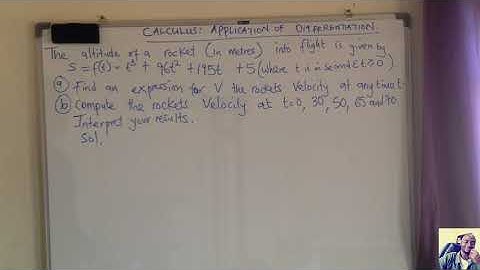 CALCULUS: APPLICATION OF DIFFERENTIATION.
The altitude of a rocket (in metres) into flight is given by
S = f(t) = t³ + 96t² + 195t + 5 (where t is in second & t ≥ 0)
(a) Find an expression for V the rockets Velocity at any time t.
(b) Compute the rockets Velocity at t=0, 30, 50, 65 and 70
Interpret your results.
Sol.